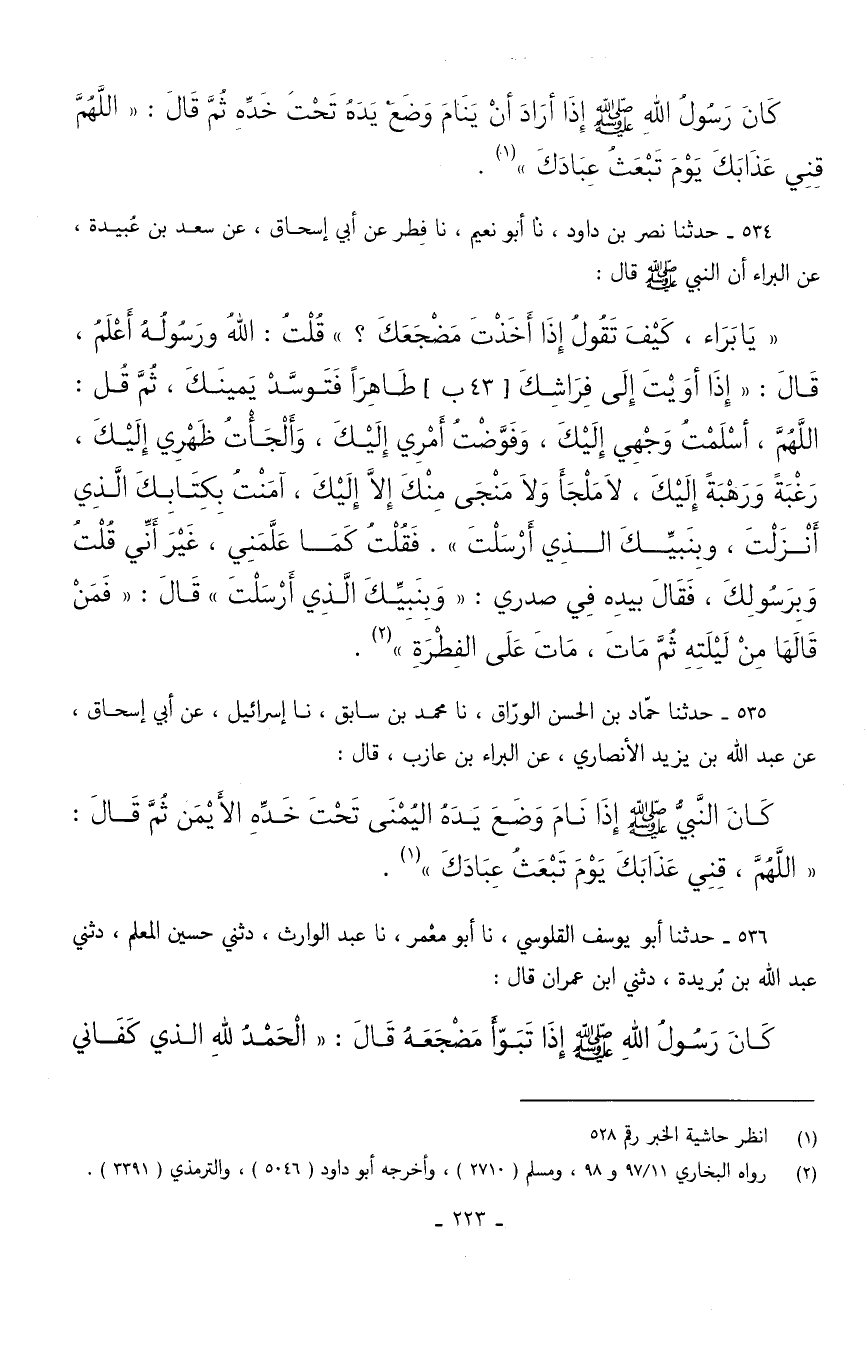 كَانَ رَسُولُ اللهِ ﷺ إِذَا أَرَادَ أَنْ يَنَامَ وَضَعَ يَدَهُ تَحْتَ خَدِّهِ ثُمَّ قَالَ : « اللَّهُمَّ
قِنِي عَذَابَكَ يَوْمَ تَبْعَثُ عِبَادَكَ »(١) .
٥٣٤ ـ حدثنا نصر بن داود ، نا أبو نعيم ، نا فِطر عن أبي إسحاق ، عن سعد بن عُبيدة ،
عن البراء أن النبي ﷺ قال :
« يَابَرَاء ، كَيْفَ تَقُولُ إِذَا أَخَذْتَ مَضْجَعَكَ ؟ » قُلْتُ : اللهُ ورَسُولُهُ أَعْلَمُ ،
قَالَ : « إِذَا أوَيْتَ إِلَى فِرَاشِكَ [ ٤٣ ب ] طَاهِرَاً فَتَوسَّدْ يَمينَكَ ، ثُمَّ قُل :
اللَّهُمَّ ، أَسْلَمْتُ وَجْهِي إِلَيْكَ ، وَفَوَّضْتُ أَمْرِي إِلَيْكَ ، وَأَلْجَأْتُ ظَهْرِي إِلَيْكَ ،
رَغْبَةً وَرَهْبَةً إِلَيْكَ ، لاَمَلْجَأَ وَلاَ مَنْجَى مِنْكَ إِلاَّ إِلَيْكَ ، آمَنْتُ بِكِتَابِكَ الَّذِي
أَنْزَلْتَ ، وبِنَبيِّكَ الذي أَرْسَلْتَ » . فَقُلْتُ كَمَا عَلَّمَنِي ، غَيْرَ أَنِّي قُلْتُ
وَبِرَسُولِكَ ، فَقَالَ بيدِه فِي صدري : « وَبِنَبِيِّكَ الَّذِي أَرْسَلْتَ » قَالَ : « فَمَنْ
قَالَهَا مِنْ لَيْلَتِهِ ثُمَّ مَاتَ ، مَاتَ عَلَى الفِطْرَةِ »(٢) .
٥٣٥ ـ حدثنا حمّاد بن الحسن الورّاق ، نا محمد بن سابق ، نا إسرائيل ، عن أبي إسحاق ،
عن عبد الله بن يزيد الأنصاري ، عن البراء بن عازب ، قال :
كَانَ النَّبِيُّ ﷺ إِذَا نَامَ وَضَعَ يَدَهُ اليُمْنَى تَحْتَ خَدِّهِ الأَيْمَنِ ثُمَّ قَالَ :
« اللَّهُمَّ ، قِنِي عَذَابَكَ يَوْمَ تَبْعَثُ عِبَادَكَ »(١) .
٥٣٦ ـ حدثنا أبو يوسف القلوسي ، نا أبو معْمر ، نا عبد الوارث ، دثني حسين المعلم ، دثني
عبد الله بن بُريدة ، دثني ابن عمران قال :
كَانَ رَسُولُ اللهِ ﷺ إِذَا تَبَوَّأَ مَضْجَعَهُ قَالَ : « الْحَمْدُ للهِ الذي كَفَاني
(١) انظر حاشية الخبر رقم ٥٢٨
(٢) رواه البخاري ٩٧/١١ و ٩٨ ، ومسلم ( ٢٧١٠ ) ، وأخرجه أبو داود ( ٥٠٤٦ ) ، والترمذي ( ٣٣٩١ ) .
ـ ٢٢٣ ـ